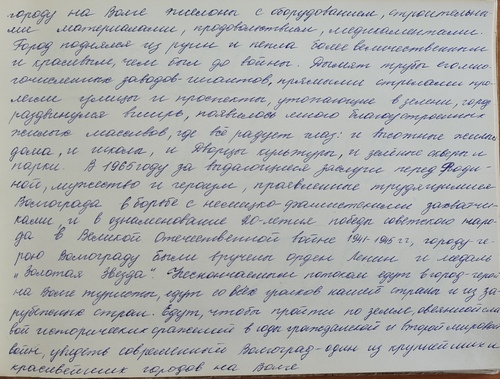 городу на Волге эшелоны с оборудованием, строительны-
ми материалами, продовольствием, медикаментами.
Город поднялся из руин и пепла более величественным
и красивым, чем был до войны. Дымят трубы его мно-
гочисленных заводов-гигантов, прямыми стрелами про-
легли улицы и проспекты, утопающие в зелени, город
раздвинулся вширь, появилось много благоустроенных
жилых массивов, где всё радует глаз: и высотные жилые
дома, и школа, и Дворцы культуры, и зелёные скверы и
парки. В 1965 году за выдающиеся заслуги перед Роди-
ной, мужество и героизм, проявленные трудящимися
Волограда в борьбе с немецко-фашистскими захватчи-
ками, и в ознаменование 20-летия победы советского наро-
да в Великой Отечественной войне 1941-1945 гг., городу-ге-
рою Волограду были вручены орден Ленина и медаль
„Золотая Звезда" Нескончаемым потоком едут в город-герой
на Волге туристы, едут со всех уголков нашей страны и из за-
рубежных стран. Едут, чтобы пройти по земле, овеянной сла-
вой исторических сражений в годы гражданской и второй мировой
войн, увидеть современный Волоград-один из крупнейших и
красивейших городов на Волге